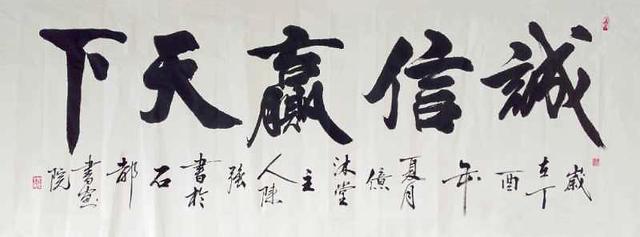 誠信贏天下
歲在丁酉年夏月億沐堂主人陳強書於石都書畫院